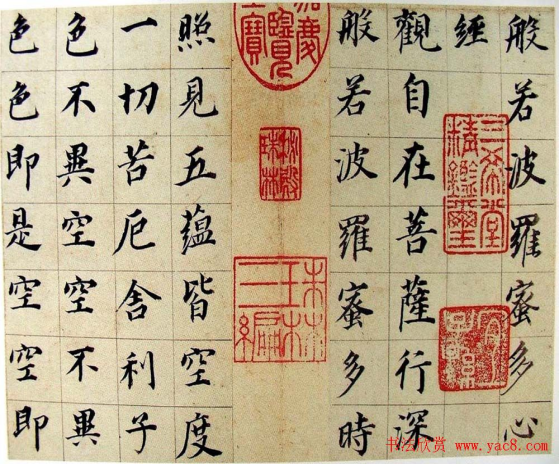 般若波羅蜜多心
經
觀自在菩薩行深
般若波羅蜜多時
照見五蘊皆空度
一切苦厄舍利子
色不異空空不異
色色即是空空即
三希堂精鑑璽
秘殿珠林
三編
书法欣赏 www.yac8.com